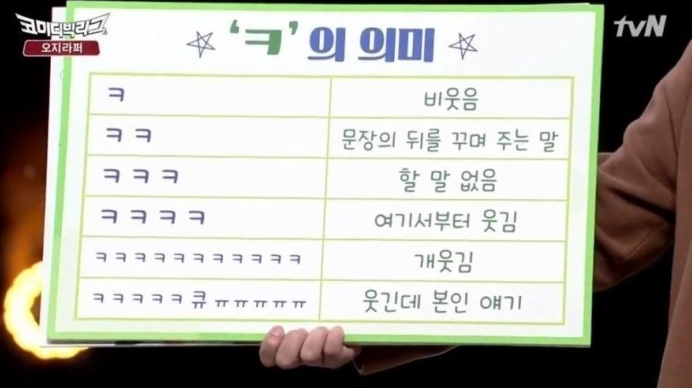 코미디빅리그
오지라퍼
tvN
'ㅋ'의 의미
ㅋ 비웃음
ㅋㅋ 문장의 뒤를 꾸며 주는 말
ㅋㅋㅋ 할 말 없음
ㅋㅋㅋㅋ 여기서부터 웃김
ㅋㅋㅋㅋㅋㅋㅋㅋㅋㅋㅋ 개웃김
ㅋㅋㅋㅋㅋ큐ㅠㅠㅠㅠㅠ 웃긴데 본인 얘기